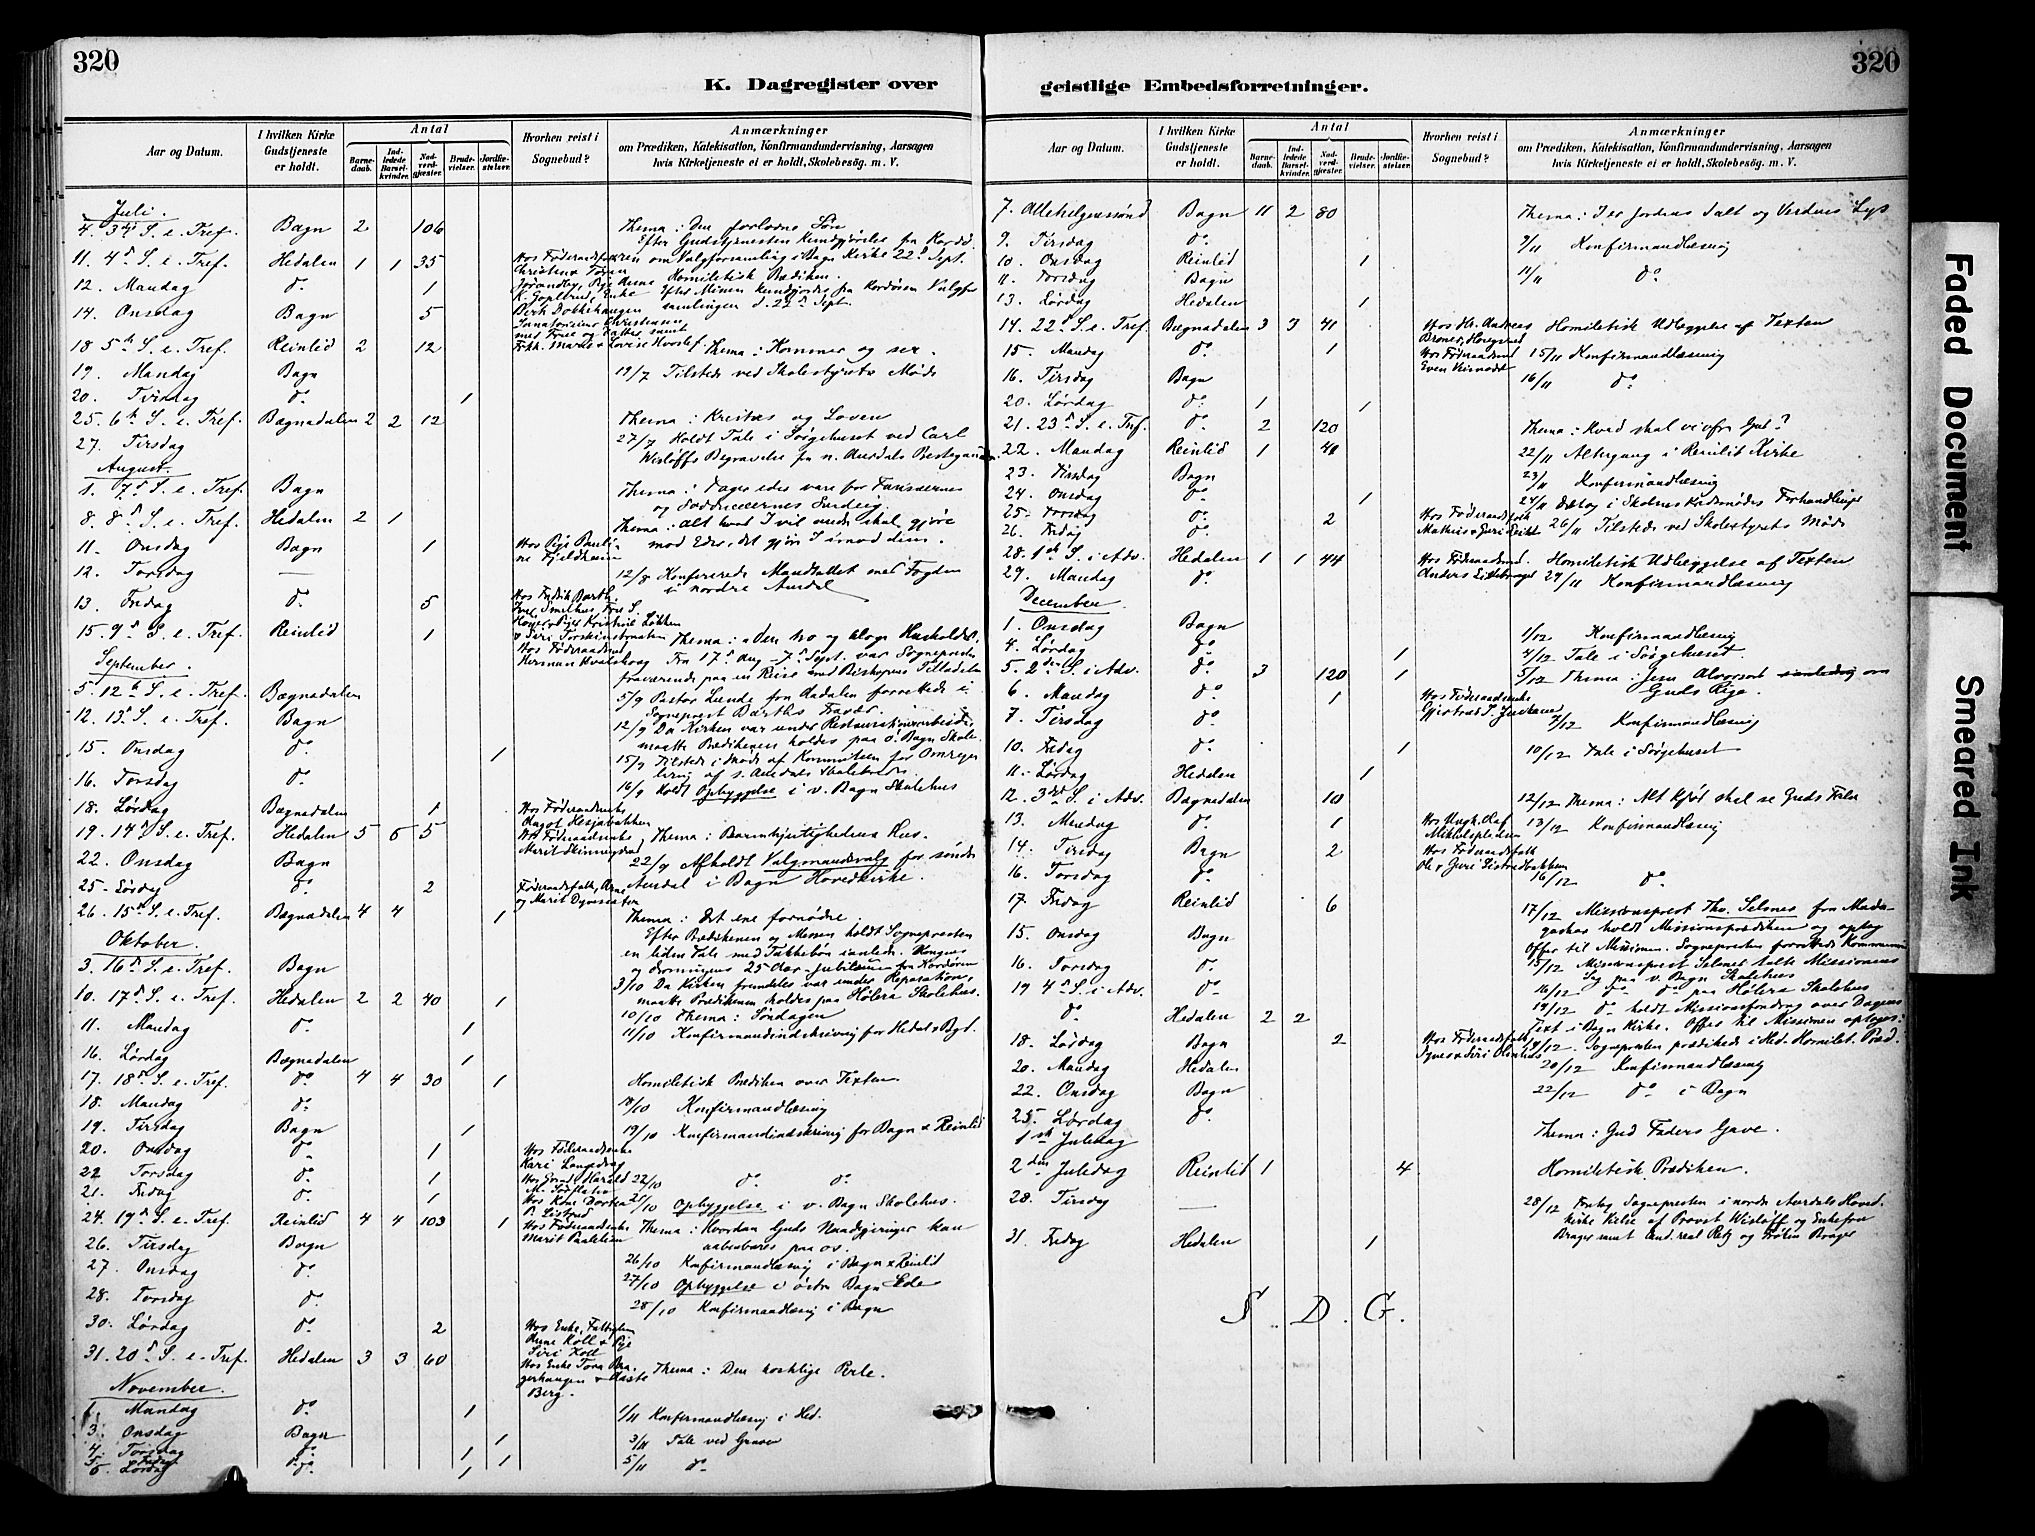 320
K. Dagregister over
Aar og Datum.
I hvilken Kirke Gudstjeneste er holdt.
Antal
Barnedaab.
Indledede Barselkvinder.
Nadverdgjester.
Brudevielser.
Jordfæstelser.
Hvorhen reist i Sognebud?
Anmærkninger
om Prædiken, Katekisation, Konfirmandundervisning, Aarsagen
hvis Kirketjeneste ei er holdt, Skolebesøg. m. V.
Juli.
4. 3de S. e. Tref. Bagn 2 106 Thema: Den forlorne Søn
Efter Gudstjenesten Kundgjørelse fra
11. 4de S. e. Tref. Hedalen 1 1 35 om Valgforsamling i Bagn Kirke 22de Sept.
Homiletisk Prædiken.
12. Mandag do 1
14. Onsdag Bagn 5 samlingen d. 22de Sept.
18 5te S. e. Tref. Reinlid 2 12 Thema: Kommer og ser.
19. Mandag Bagn 19/7 Tilstede ved Skolestyrets Møde
20. Tirsdag do 1
25. 6te S. e. Tref. Bægnadalen 2 2 12 Thema: Kristus og Loven
27. Tirsdag 27/7 Holdt Tale i Sørgehuset ved Carl
Wisløffs Begravelse fra n. Aurdals Prestegaard
August.
1. 7de S. e. Tref. Bagn Thema: Tager eder vare for Farisæernes
og Sadducæernes Surdeig.
8. 8de S. e. Tref. Hedalen 2 1 Thema: Alt hvad I vil andre skal gjøre
mod Eder, det gjør I imod dem.
11. Onsdag Bagn 1 Hos Pige Pauline Fjeldheim
12. Torsdag — 12/8 Konfererede Mandtallet med Fogden
i nordre Aurdal
13. Fredag do 5
15. 9de S. e. Tref. Reinlid 1 Thema: Den tro og kloge Husholder.
September. Fra 17de Aug - 7de Sept. var Sognepresten
fraværende paa en Reise med Biskopens Tilladelse
5. 12te S. e. Tref. Bægnadalen 5/9 Pastor Lunde fra Aadalen forrettede i
Sogneprest Barths Fravær.
12. 13de S. e. Tref. Bagn 12/9 Da Kirken var under Restaurationsarbeide,
maatte Prædikenen holdes paa ø. Bagn Skole.
15. Onsdag do 1 15/9 Tilstede i Møde af Kommiteen for Omregu-
lering af s. Aurdals Skolekreds
16. Torsdag do 16/9 Holdt Opbyggelse i v. Bagn Skolehus
18. Lørdag Bægnadalen 1
19. 14de S. e. Tref. Hedalen 5 5 5 Thema: Barmhjertighedens Hus.
22. Onsdag Bagn 22/9 Afholdt Valgmandsvalg for søndre
Aurdal i Bagn Hovedkirke.
25. Lørdag do 2
26. 15de S. e. Tref. Bægnadalen 4 4 1 Thema: Det ene fornødne.
Oktober. Efter Prædikenen og Messen holdt Sognepresten
en liden Tale med Takkebøn i anledn. Kongens
og dronningens 25 Aar-Jubilæum fra Kordøren
3. 16de S. e. Tref. Bagn 3/10 Da Kirken fremdeles var under Reparation,
maatte Prædikenen holdes paa Hølera Skolehus.
10. 17de S. e. Tref. Hedalen 2 2 40 1 10/10 Thema: Søndagen
11. Mandag do 1 11/10 Konfirmandindskrivning for Hedal s Bygd.
16. Lørdag Bægnadalen 1
17. 18de S. e. Tref. do 4 4 30 1 Homiletisk Prædiken over Texten
18. Mandag do 18/10 Konfirmandlæsning
19. Tirsdag Bagn 1 19/10 Konfirmandindskrivning for Bagn & Reinlid
20. Onsdag do 1
22 Torsdag do 1 22/10 do do
21. Fredag do 1 21/10 Opbyggelse i v. Bagn Skolehus.
24. 19de S. e. Tref. Reinlid 4 4 103 1 Thema: Hvordan Guds Naadegjerninger kan
aabenbares paa os.
26. Tirsdag Bagn 26/10 Konfirmandlæsning i Bagn & Reinlid
27. Onsdag do 27/10 Opbyggelse i østre Bagn
28. Torsdag do 28/10 Konfirmandlæsning i Bagn
30. Lørdag do 2
31. 20de S. e. Tref. Hedalen 3 3 60 Thema: Den kostelige Perle.
November.
1. Mandag do 1 1/11 Konfirmandlæsning i Hed.
3. Onsdag Bagn 1 3/11 Tale ved Graven
4. Torsdag do 1
5. Fredag do 1 5/11 do
6. Lørdag do 1
320
geistlige Embedsforretninger.
Aar og Datum.
I hvilken Kirke Gudstjeneste er holdt.
Antal
Barnedaab.
Indledede Barselkvinder.
Nadverdgjester.
Brudevielser.
Jordfæstelser.
Hvorhen reist i Sognebud?
Anmærkninger
om Prædiken, Katekisation, Konfirmandundervisning, Aarsagen
hvis Kirketjeneste ei er holdt, Skolebesøg. m. V.
7. Allehelgenssønd Bagn 11 2 80 Thema: I er Jordens Salt og Verdens Lys
9. Tirsdag do 9/11 Konfirmandlæsning
10. Onsdag Reinlid 1
11. Torsdag Bagn 11/11 do
13. Lørdag Hedalen 1
14. 22de S. e. Tref. Bægnadalen 3 3 41 Homiletisk Udlæggelse af Texten
15. Mandag do 1 15/11 Konfirmandlæsning
16. Tirsdag Bagn 16/11 do
20. Lørdag do 1 1
21. 23de S. e. Tref. do 2 120 Thema: Hvad skal vi ofre Gud?
22. Mandag Reinlid 1 40 22/11 Altergang i Reinlid Kirke
23. Tirsdag Bagn 23/11 Konfirmandlæsning
24. Onsdag do 1 24/11 Deltog i Skolens Kredsmødes Forhandlinger
25. Torsdag do 2
26. Fredag do 26/11 Tilstede ved Skolestyrets Møde
28. 1ste S. i Adv. Hedalen 1 1 44 Homiletisk Udlæggelse af Texten
29. Mandag do 29/11 Konfirmandlæsning
December.
1. Onsdag Bagn 1/12 Konfirmandlæsning
4. Lørdag do 1 4/12 Tale i Sørgehuset.
5. 2den S. i Adv. do 3 120 1 5/12 Thema: Jesu Alvorsord om
Guds Rige.
6. Mandag do 1
7. Tirsdag do 7/12 Konfirmandlæsning
10. Fredag do 1 10/12 Tale i Sørgehuset
11. Lørdag Hedalen 1
12. 3die S. i Adv. Bægnadalen 10 12/12 Thema: Alt Kjød skal se Guds Frelse
13. Mandag do 1 13/12 Konfirmandlæsning
14. Tirsdag Bagn 2 Hos Føderaadsfolk
16. Torsdag do 16/12 do
17. Fredag Reinlid 6 17/12 Missionsprest Thv. Selmer fra Mada-
gaskar holdt Missionsprædiken og optog
15. Onsdag Bagn Offer til Missionen. Sognepresten forrettede Kommunion
16. Torsdag do 15/12 Missionsprest Selmer talte Missionens
Sag paa v. Bagn Skolehus
16/12 do do paa Hølera Skolehus
19 4de S. i Adv. do 19/12 do holdt Missionsforedrag over Dagens
do Hedalen 2 2 Text i Bagn Kirke. Offer til Missionen optoges.
18. Lørdag Bagn 2 19/12. Sognepresten prædikede i Hed. Homilet. Præd.
20. Mandag Hedalen 20/12 Konfirmandlæsning
22. Onsdag Bagn 22/12 do i Bagn
25. Lørdag do
1ste Juledag Thema: Gud Faders Gave.
2den Juledag Reinlid 1 4 Homiletisk Prædiken.
28. Tirsdag — 28/12 Foretog Sognepresten i nordre Aurdals Hoved-
kirke Vielse af Provst Wisløff og Enkefru
Brager samt
31. Fredag Hedalen 1
S. D. G.
Faded Document
Smeared Ink